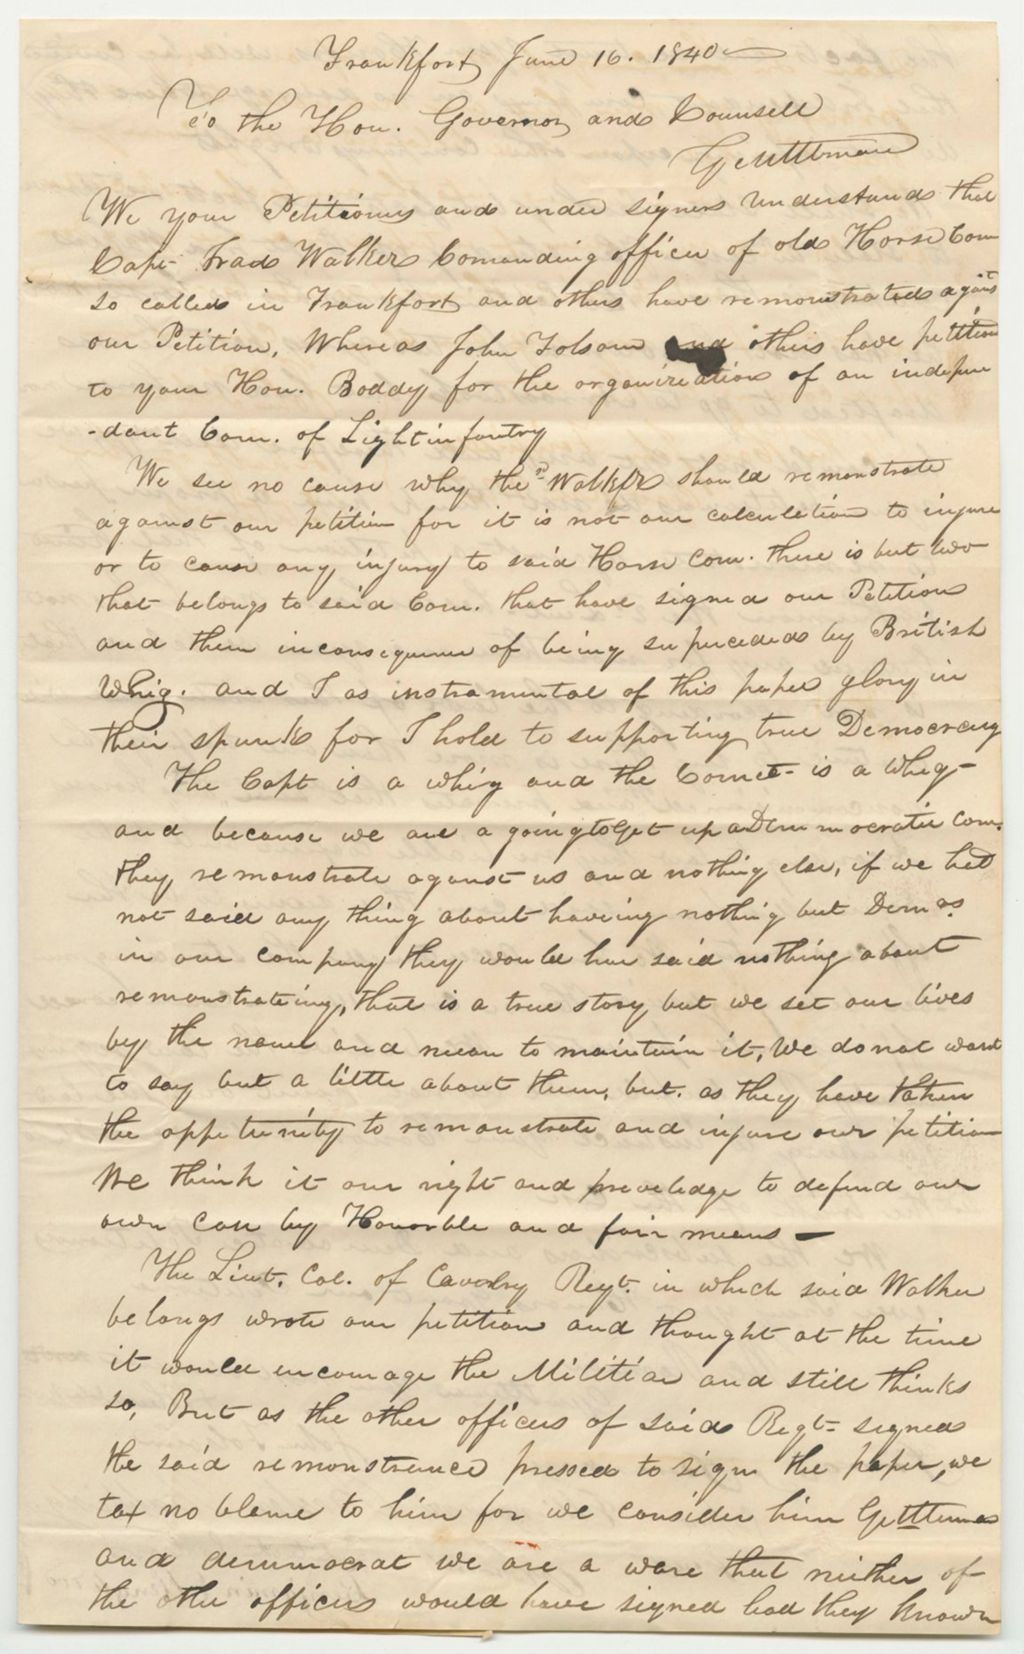 Frankfort June 16. 1840
To the Hon. Governor and Counsell
Genttlman
We your Petitioners and under signers understands that
Capt Frad Walker Comanding officer of old Horse Com
so called in Frankfort and others have remonstrated against
our Petition, Whereas John Folsom and others have petition
to your Hon. Boddy for the organization of an indepen
-dant Com. of Lightinfantry
We see no cause why the sd Walker should remonstrate
against our petition for it is not our calculation to injure
or to cause any injury to said Horse Com. there is but two
that belongs to said Com. that have signed our Petition
and them inconsequence of being superceded by British
Whig. and I as instramental of this paper glory in
their spunk for I hold to supporting true Democracy
The Capt is a whig and the Cornet is a Whig
and because we are a going to get up a Demmocratic com.
they remonstrate against us and nothing else, if we hed
not said any thing about haveing nothing but Demos.
in our company they would hav said nothing about
remonstrateing, that is a true story but we set our lives
by the name and mean to maintain it, We do not want
to say but a little about them, but. as they have taken
the oppetunity to remonstrate and injure our petition
We think it our right and preveledge to defend our
own case by Honorble and fair means —
The Lieut. Col. of Cavalry Regt. in which said Walker
belongs wrote our petition and thought at the time
it would encourage the Militia and still thinks
so, But as the other officers of said Regt- signed
the said remonstrence pressed to sign the paper, we
tax no blame to him for we consider him Genttleman
and demmocrat we are a ware that neither of
the other officers would have signed had they known